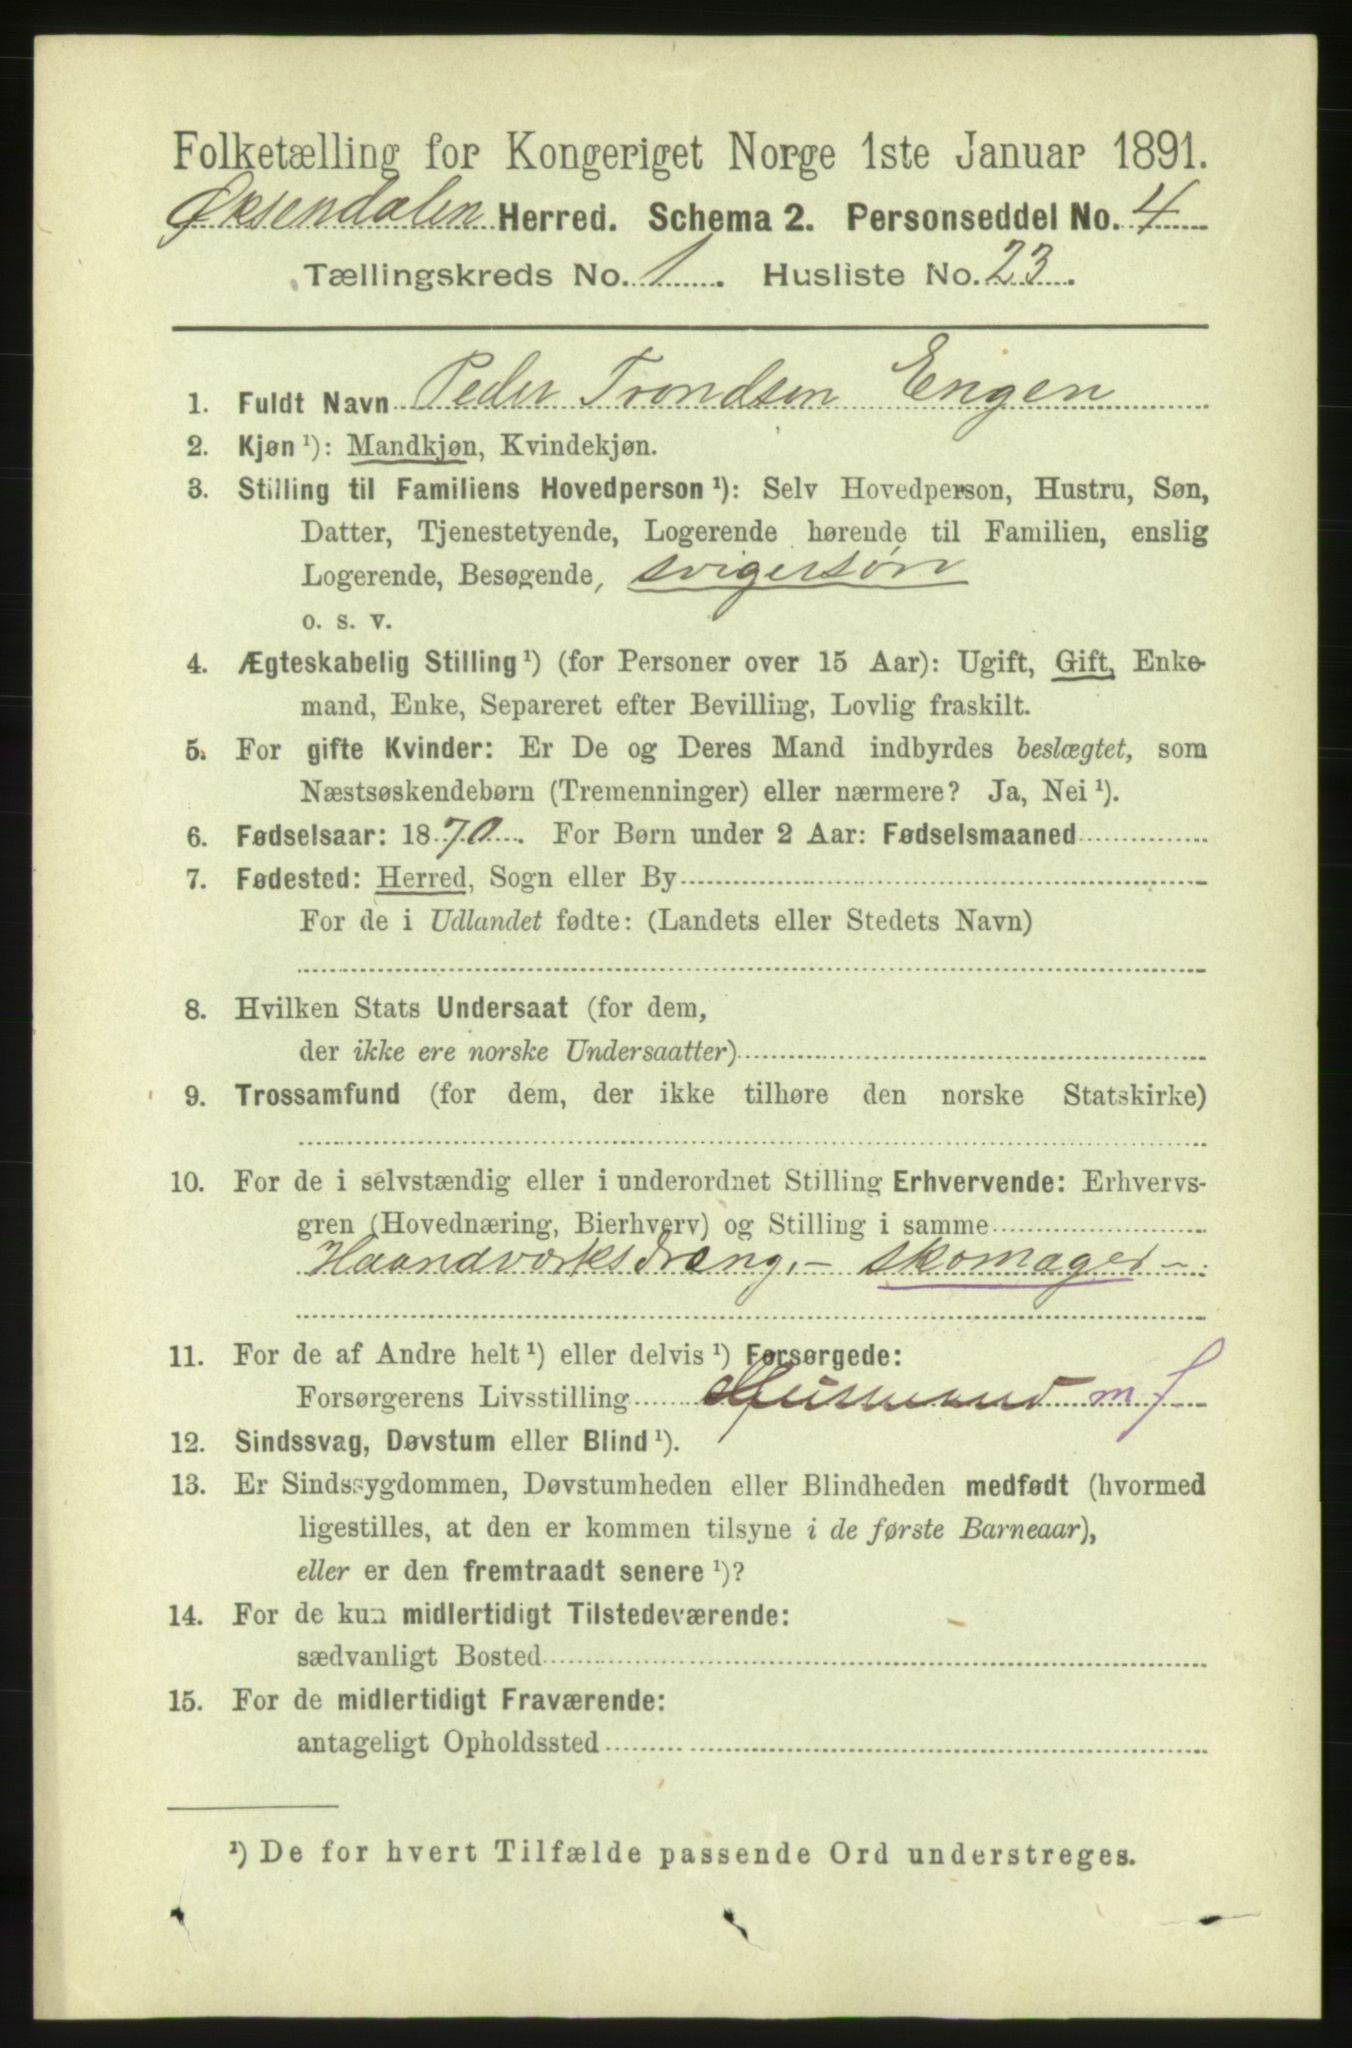 Folketælling for Kongeriget Norge 1ste Januar 1891.
Øksendalen Herred. Schema 2. Personseddel No. 4
Tællingskreds No. 1. Husliste No. 23.
1. Fuldt Navn Peder Trondsen Engen
2. Kjøn ¹): Mandkjøn, Kvindekjøn.
3. Stilling til Familiens Hovedperson ¹): Selv Hovedperson, Hustru, Søn,
Datter, Tjenestetyende, Logerende hørende til Familien, enslig
Logerende, Besøgende, svigersøn
o. s. v.
4. Ægteskabelig Stilling ¹) (for Personer over 15 Aar): Ugift, Gift, Enke-
mand, Enke, Separeret efter Bevilling, Lovlig fraskilt.
5. For gifte Kvinder: Er De og Deres Mand indbyrdes beslægtet, som
Næstsøskendebørn (Tremenninger) eller nærmere? Ja, Nei ¹).
6. Fødselsaar: 1870. For Børn under 2 Aar: Fødselsmaaned
7. Fødested: Herred, Sogn eller By
For de i Udlandet fødte: (Landets eller Stedets Navn)
8. Hvilken Stats Undersaat (for dem,
der ikke ere norske Undersaatter)
9. Trossamfund (for dem, der ikke tilhøre den norske Statskirke)
10. For de i selvstændig eller i underordnet Stilling Erhvervende: Erhvervs-
gren (Hovednæring, Bierhverv) og Stilling i samme
Haandværksdræng.- skomager -
11. For de af Andre helt ¹) eller delvis ¹) Forsørgede:
Forsørgerens Livsstilling Husmand m f
12. Sindssvag, Døvstum eller Blind ¹).
13. Er Sindssygdommen, Døvstumheden eller Blindheden medfødt (hvormed
ligestilles, at den er kommen tilsyne i de første Barneaar),
eller er den fremtraadt senere ¹)?
14. For de kun midlertidigt Tilstedeværende:
sædvanligt Bosted
15. For de midlertidigt Fraværende:
antageligt Opholdssted
¹) De for hvert Tilfælde passende Ord understreges.